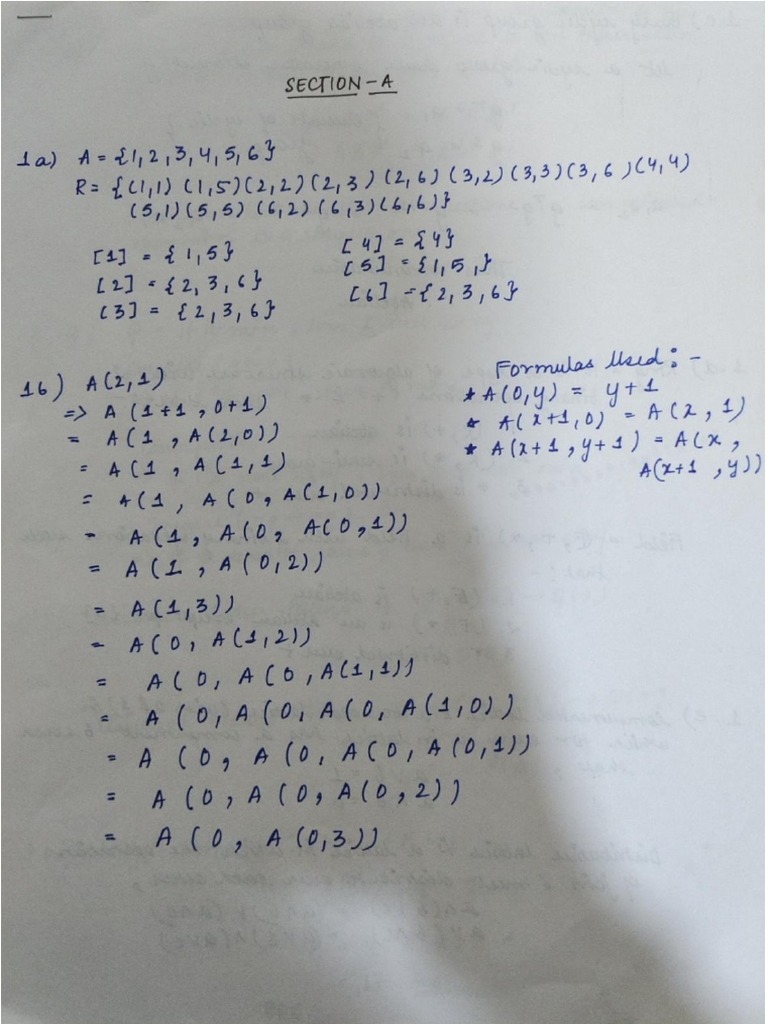 SECTION-A
1a) A = {1,2,3,4,5,6}
R = {(1,1) (1,5)(2,2)(2,3)(2,6)(3,2)(3,3)(3,6)(4,4)
(5,1)(5,5) (6,2)(6,3)(6,6)}
[1] = {1,5}
[2] = {2,3,6}
[3] = {2,3,6}
[4] = {4}
[5] = {1,5,}
[6] = {2,3,6}
1b) A(2,1)
=> A (1+1, 0+1)
= A(1, A(2,0))
= A(1, A(1,1)
= A(1, A(0, A(1,0))
= A(1, A(0, A(0,1))
= A(1, A(0,2))
= A(1,3))
= A(0, A(1,2))
= A(0, A(0, A(1,1))
= A(0, A(0, A(0, A(1,0))
= A (0, A(0, A(0, A(0,1))
= A (0, A(0, A(0,2))
= A (0, A(0,3))
Formulas Used:-
* A(0,y) = y+1
* A(x+1,0) = A(x,1)
* A(x+1,y+1) = A(x,
A(x+1,y))